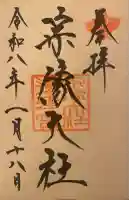 奉拝
宗像大社
令和八年一月十八日